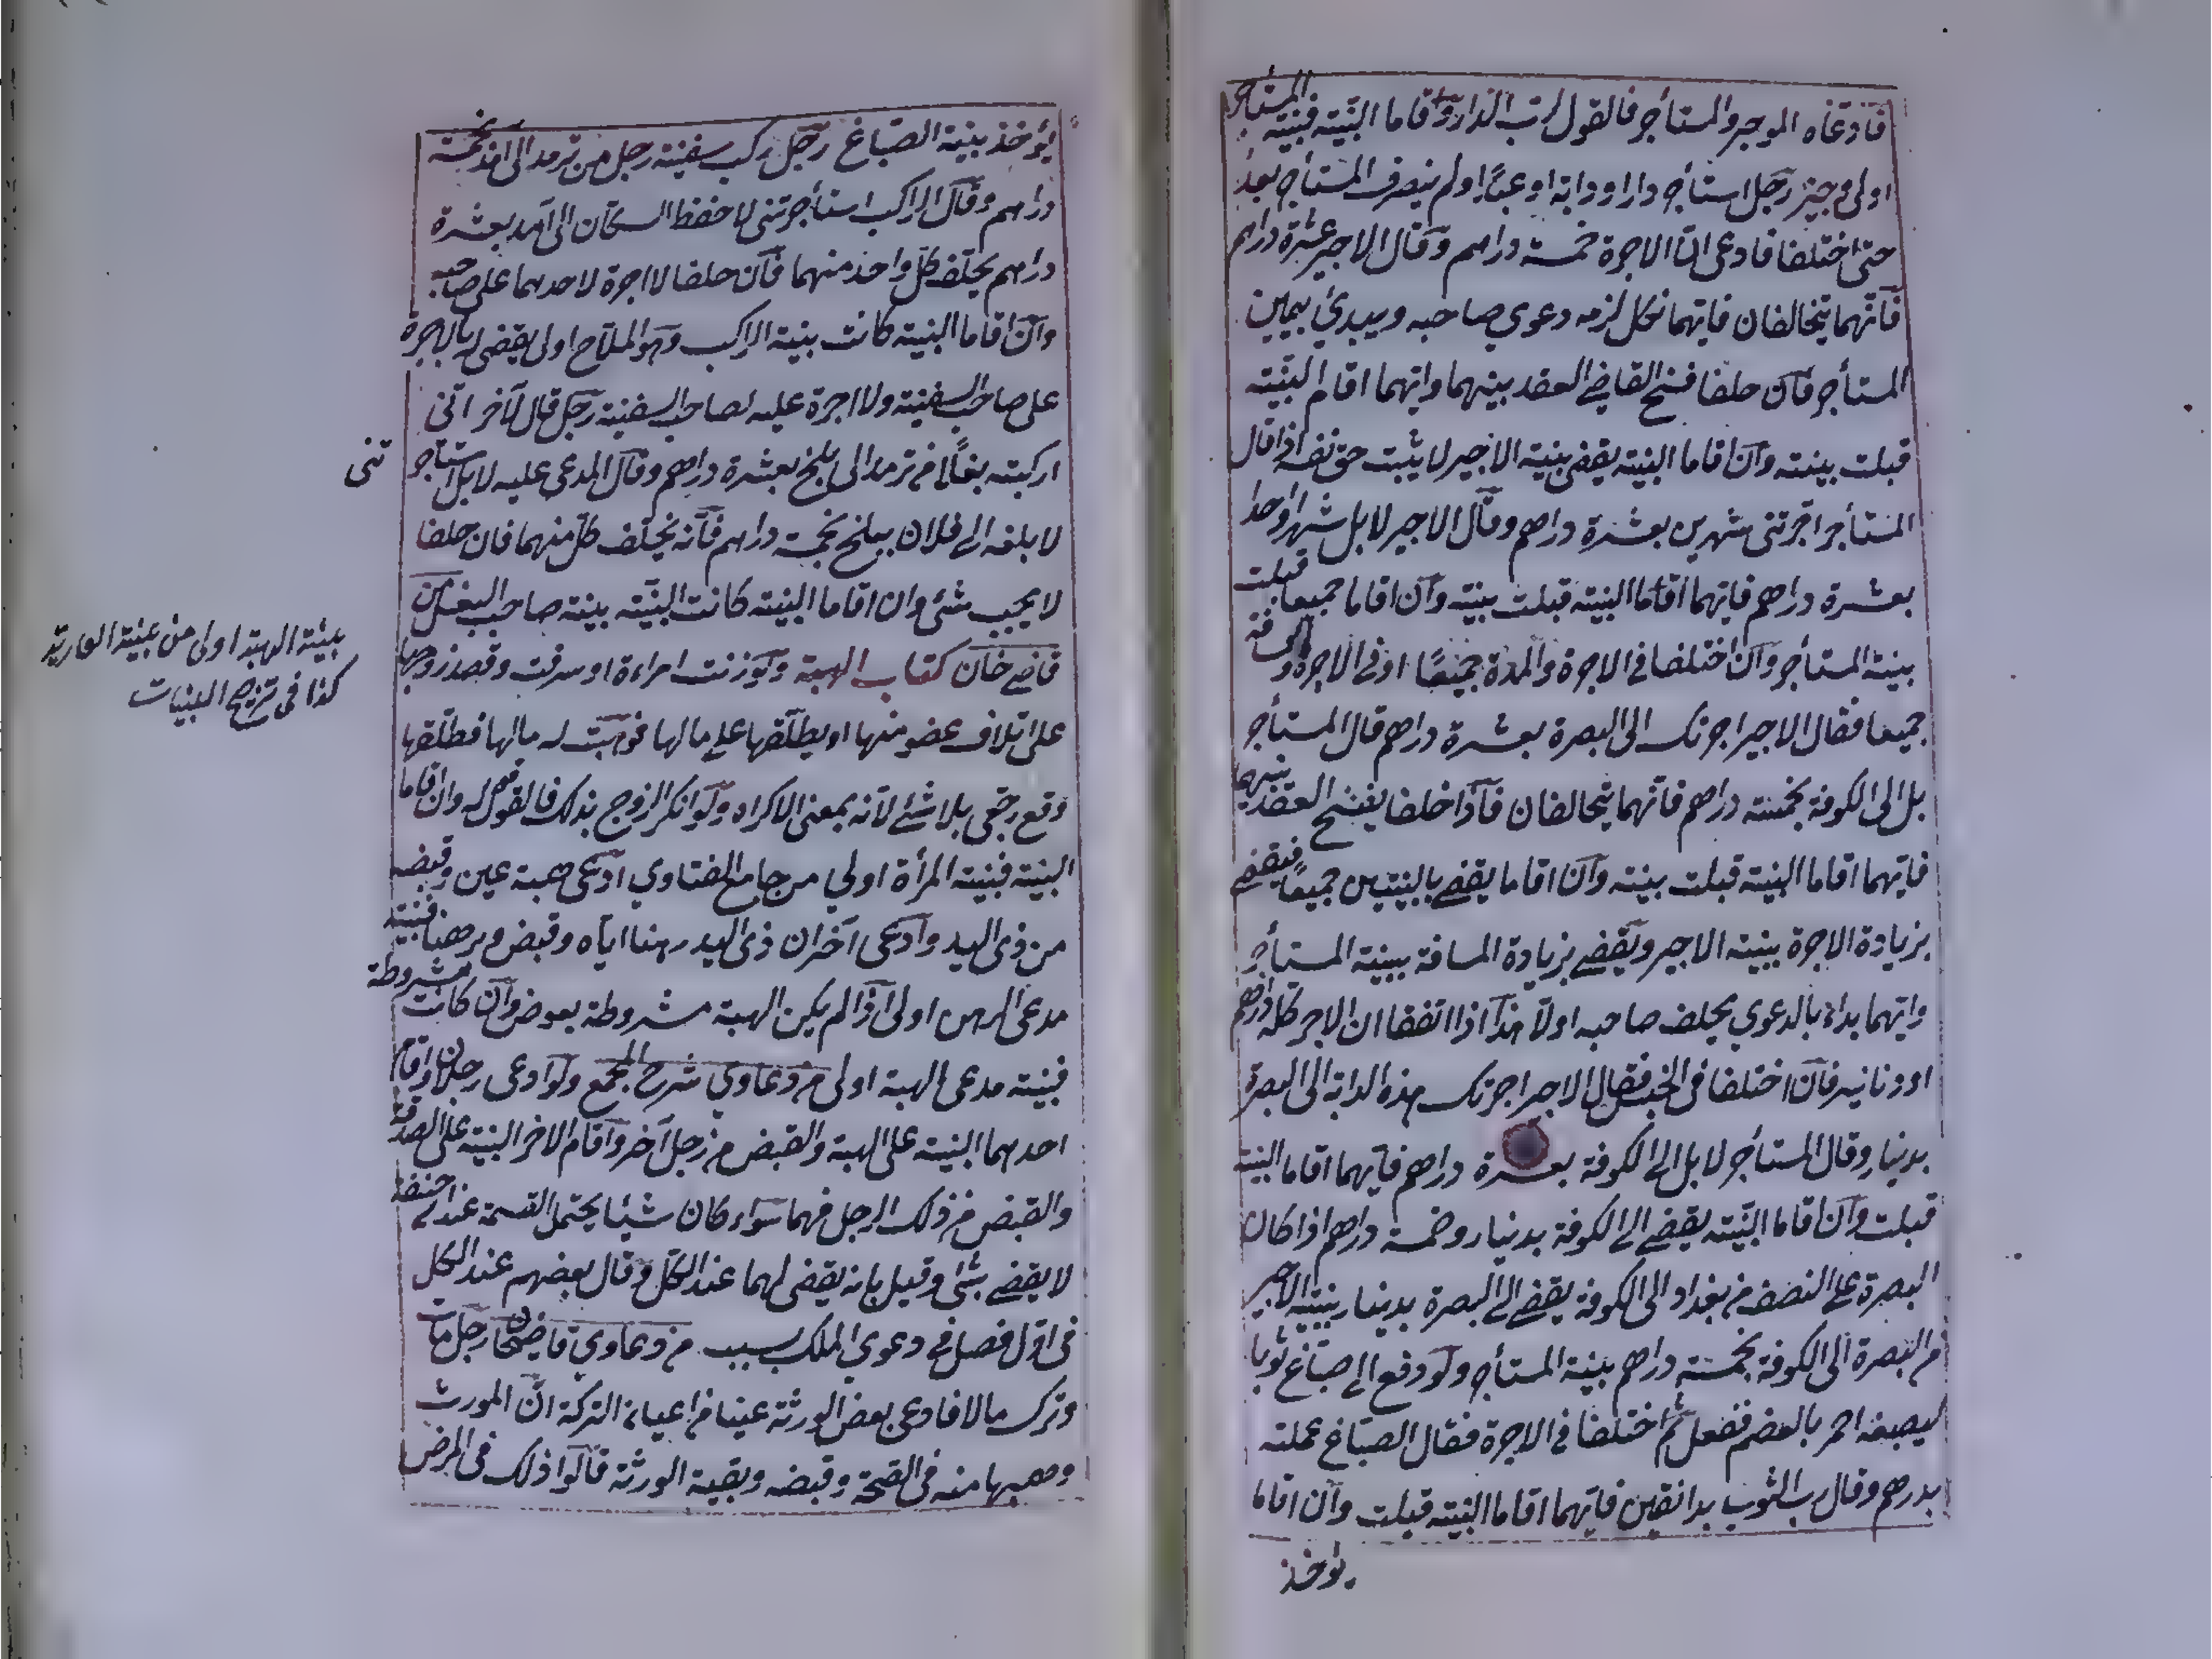 فادعاه الموجر والمستأجر فالقول لرب الدار ولو اقاما البينة فبينة المستأجر
اولى وجيز رجل استأجر دارا او دابة او عبدا ولم يتصرف المستأجر بعد
حتى اختلفا فادعى ان الاجرة خمسة دراهم وقال الاجير عشرة دراهم
فانهما يتحالفان فايهما نكل لزمه دعوي صاحبه ويبدئ بيمين
المستأجر فان حلفا فسخ القاضي العقد بينهما وايهما اقام البينة
قبلت بينته وان اقاما البينة يقضى ببينة الاجير لا يثبت حق نفسه اذا قال
المستأجر اجرتنى شهرين بعشرة دراهم وقال الاجير لا بل شهرا واحدا
بعشرة دراهم فايهما اقاما البينة قبلت بينته وان اقاما جميعا قبلت
بينة المستأجر وان اختلفا فى الاجرة والمدة جميعا او فى الاجرة والمسافة
جميعا فقال الاجير اجرتك الى البصرة بعشرة دراهم قال المستأجر
بل الى الكوفة بخمسة دراهم فانهما يتحالفان فاذا حلفا يفسخ العقد بينهما
فايهما اقاما البينة قبلت بينته وان اقاما يقضي بالبينتين جميعا فيقضي
بزيادة الاجرة ببينة الاجير ويقضي بزيادة المسافة ببينة المستأجر
وايهما بداء بالدعوي يحلف صاحبه اولا هذا اذا اتفقا ان الاجر كله دراهم
او دنانير فان اختلفا فى الجنس فقال الاجير اجرتك هذه الدابة الى البصرة
بدينار وقال المستأجر لا بل الى الكوفة بعشرة دراهم فايهما اقاما البينة
قبلت وان اقاما البينة يقضي الى الكوفة بدينار وخمسة دراهم اذا كان
البصرة على النصف من بغداد الى الكوفة يقضي الى البصرة بدينار ببينة الاجير
من البصرة الى الكوفة بخمسة دراهم ببينة المستأجر ولو دفع الى صباغ ثوبا
ليصبغه احمر بالعصفر ففعل ثم اختلفا فى الاجرة فقال الصباغ عملته
بدرهم وقال رب الثوب بدانقين فايهما اقاما البينة قبلت وان اقاما
يؤخذ
يؤخذ ببينة الصباغ رجل ركب سفينة رجل من ترمد الى امد بخمسة
دراهم وقال الراكب استأجرتنى لاحفظ السكان الى امد بعشرة
دراهم يحلف كل واحد منهما فان حلفا لا اجرة لاحدهما على صاحبه
وان اقاما البينة كانت بينة الراكب وهو الملاح اولى يقضى له بالاجرة
على صاحب السفينة ولا اجرة عليه لصاحب السفينة رجل قال لآخر انى
اركبته بغلا من ترمد الى بلخ بعشرة دراهم وقال المدعي عليه لا بل استأجر
تنى
لا بلغه الى فلان ببلخ بخمسة دراهم فانه يحلف كل منهما فان حلفا
لا يجب شئ وان اقاما البينة كانت البينة بينة صاحب البغل من
قاضي خان كتاب الهبة ولو زنت امراءة او سرقت وقصد زوجها
على اتلاف عضو منها او يطلقها على مالها فوهبت له مالها فطلقها
وقع رجعى بلا شئ لانه بمعنى الاكراه ولو انكر الزوج بذلك فالقول له وان اقاما
البينة فبينة المرأة اولي من جامع الفتاوي ادعى هبة عين وقبضه
من ذى اليد وادعى آخر ان ذى اليد رهنا اياه وقبض وبرهنا فبينة
مدعى الرهن اولى اذا لم يكن الهبة مشروطة بعوض وان كانت مشروطة
فبينة مدعى الهبة اولى من دعاوي شرح المجمع ولو ادعى رجلان واقام
احدهما البينة على الهبة والقبض من رجل آخر واقام الاخر البينة على الصدقة
والقبض من ذلك الرجل فهما سواء كان شيئا يحتمل القسمة عند ابى حنيفة
لا يقضي بشئ وقيل بانه يقضى لهما عند الكل وقال بعضهم عند الكل
فى اول فصل فى دعوي الملك بسبب من دعاوي قاضيخان رجل مات
وترك مالا فادعى بعض الورثة عينا من اعيان التركة ان المورث
وهبها منه فى الصحة وقبضه وبقية الورثة قالوا ذلك فى المرض
بينة الهبة اولى من بينة العارية
كذا فى ترجيح البينات